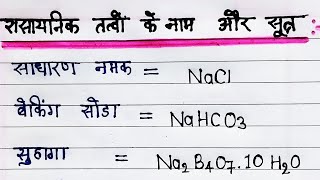 रासायनिक तत्वों के नाम और सूत्र
साधारण नमक = NaCl
बेकिंग सोडा = NaHCO₃
सुहागा = Na₂B₄O₇.10H₂O